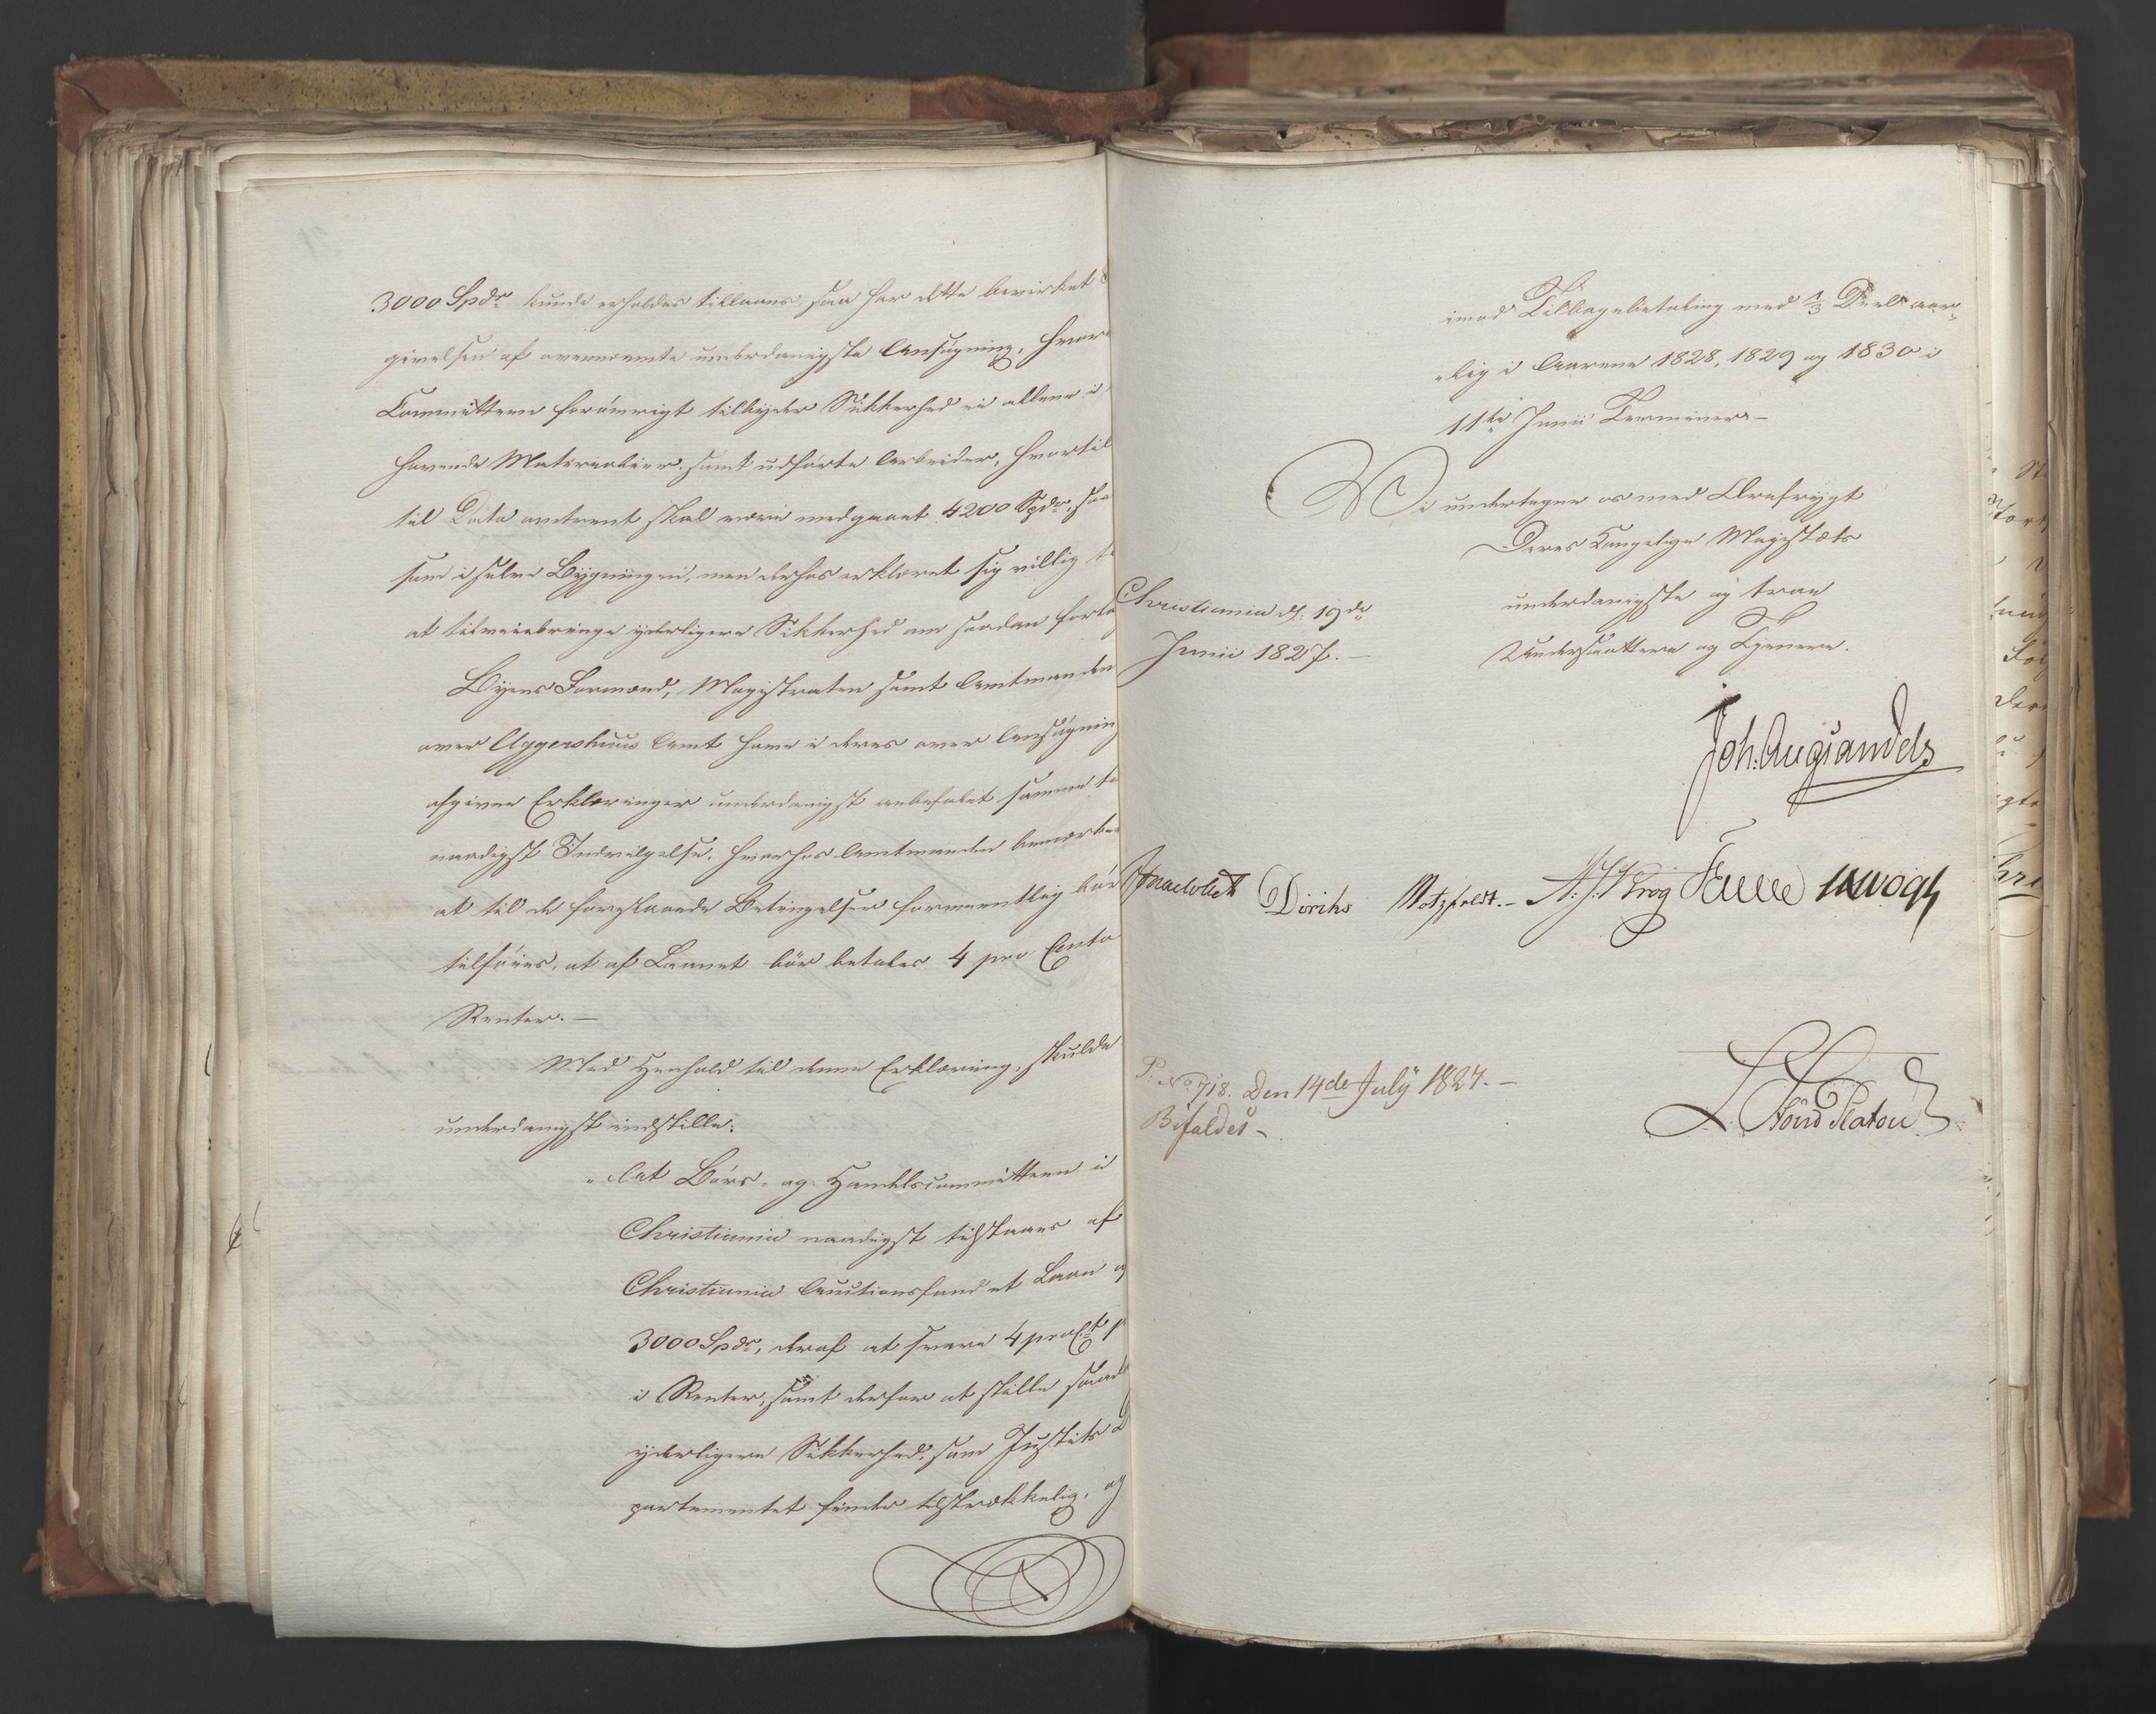 3000 Spdr kunde erholdes tillaans, saa har dette bevirket
givelsen af ovennævnte underdanigste Ansøgning, hvor
Committeen forøvrigt tilbyder Sikkerhed ei allene i
havende Materialier, samt udførte Arbeider, hvortil
til Dato omtrent skal være medgaaet 4200 Spdr, saa
som i selve Bygningen, men derhos erklæret sig villig t
at tilveiebringe yderligere Sikkerhed om saadan forla
Byens Formænd, Magistraten samt Amtmanden
over Aggershuus Amt have i deres over Ansøgning
afgivne Erklæringer underdanigst anbefalet samme t
naadigst Indvilgelse, hvorhos Amtmanden bemærke
at til de foreslaaede Betingelser formeentlig bør
tilføies, at af Laanet bør betales 4 pro Cento
Renter. —
Med Henhold til denne Erklæring, skulde
underdanigst indstille:
"At Børs- og Handelscommitteen i
Christiania naadigst tilstaaes af
Christiania Auctionsfond et Laan
3000 Spdr, deraf at svare 4 proCt p
i Renter, samt derfor at stille saad
yderligere Sikkerhed, som Justits D
partementet finder tilstrækkelig, og
imod Tilbagebetaling med 1/3 Deel aar-
"lig i Aarene 1828, 1829 og 1830 i
11te Junii Terminer. —
Vi undertegne os med Ærefrygt
Deres Kongelige Majestæts
Christiania d. 19de underdanigste og troe
Junii 1827. — Undersaatter og Tjenere.
Joh. Aug. Sandels
Diriks Motzfeldt. — A. J. Krog
P. No 718. Den 14de July 1827. —
Bifaldes —